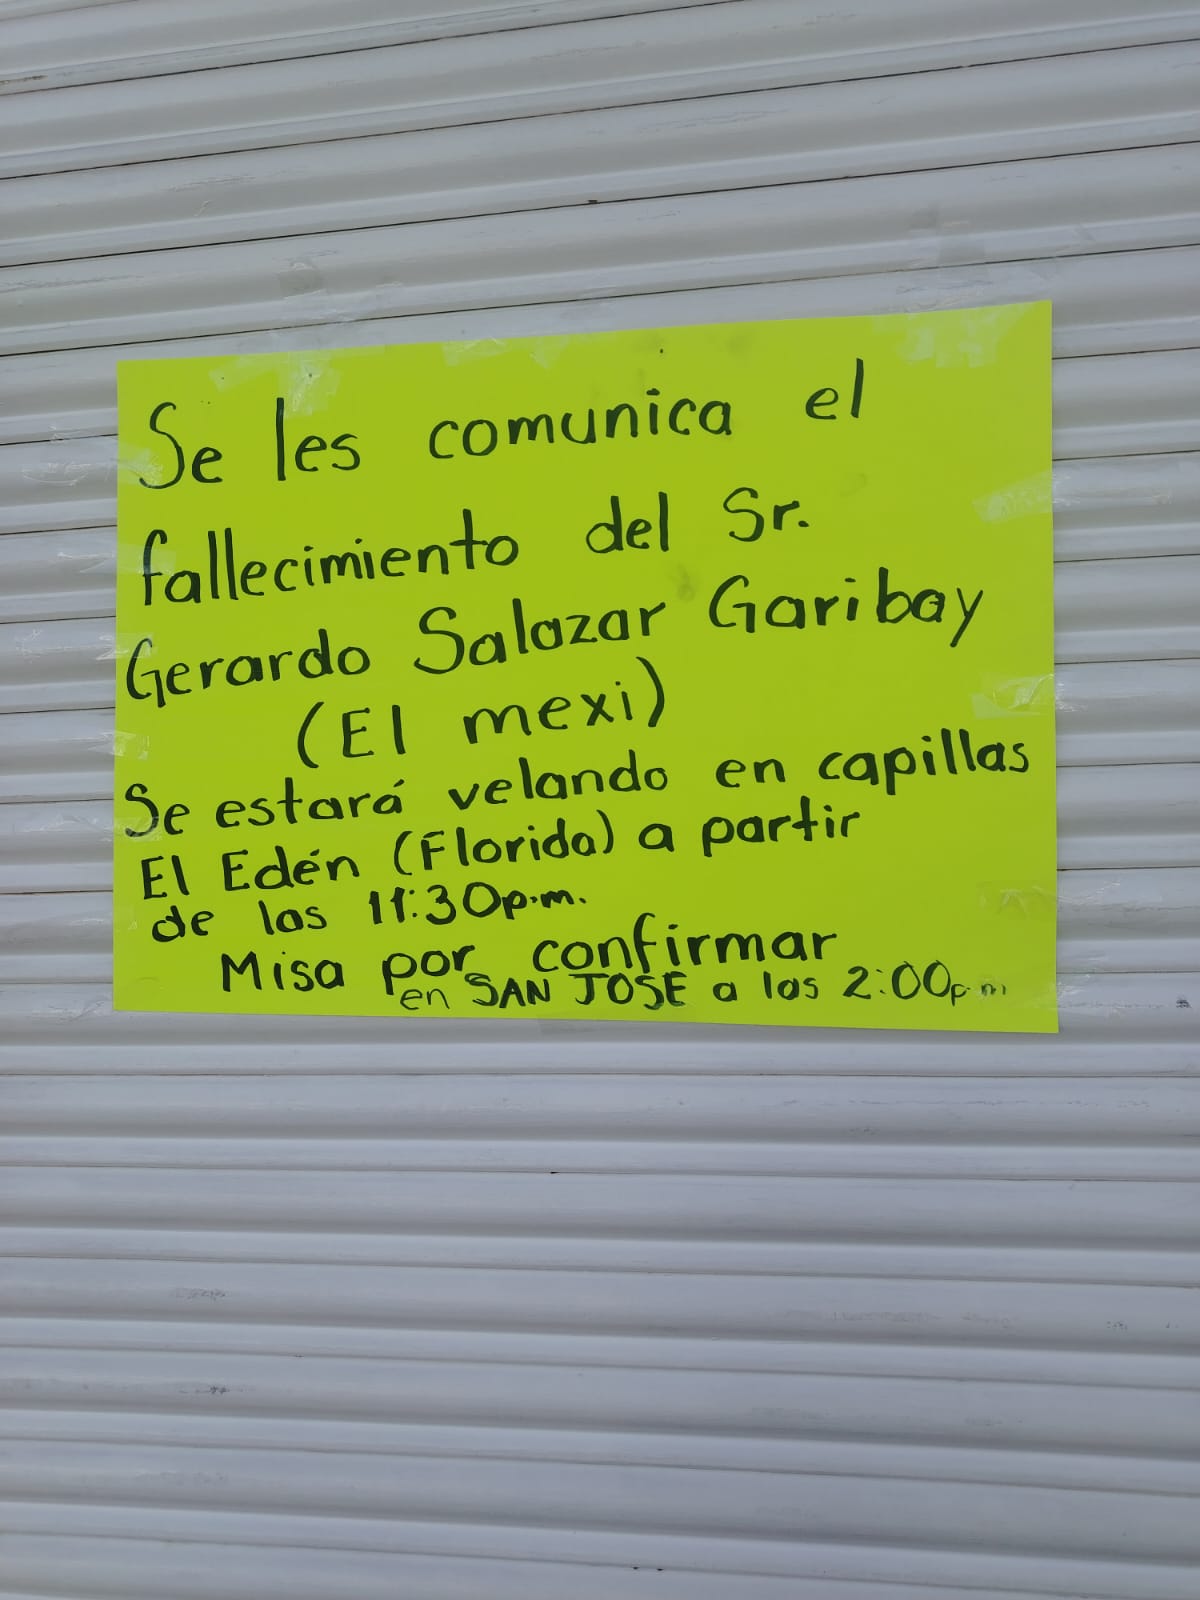 Se les comunica el
fallecimiento del Sr.
Gerardo Salazar Garibay
(El mexi)
Se estará velando en capillas
El Edén (Florida) a partir
de las 11:30p.m.
Misa por confirmar
en SAN JOSE a las 2:00p.m